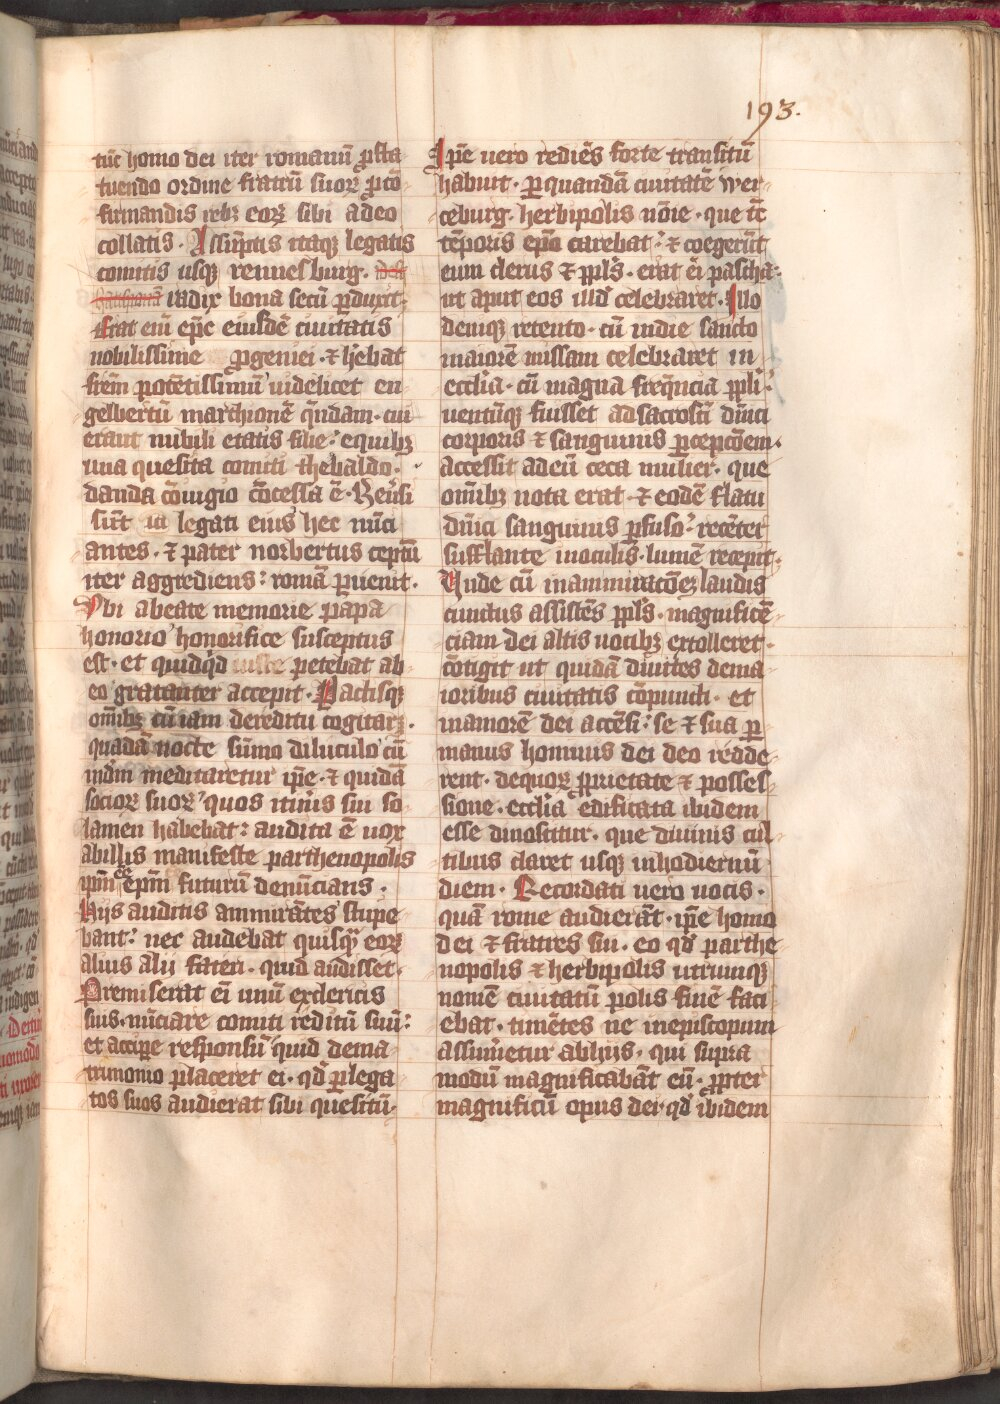 193.
tūc homo dei iter romanū ꝓfta
tuendo ordine fratrū suoꝝ ꝓ cō
firmandis rebꝫ eoꝝ sibi a deo
collatis. Assūptis itaqꝫ legatis
comitis usqꝫ rennesburg.
iradix bona secū ꝑduxit.
Erat eni͂ ep̄c eiusdē ciuitatis
nobilissime ꝓgeniei. ⁊ h̄ebat
fr̄em potētissimū uidelicet en
gelbertū marchionē q̄ndam. cui
erant nubili etatis filie: e quibꝫ
una quesita comiti thebaldo.
danda cōiugio cōcessa ē. Reūsi
sūt ita legati eius hec nūci
antes. ⁊ pater norbertus ceptū
iter aggrediens: romā ꝑuenit.
Vbi a beate memorie papa
honorio honorifice susceptus
est. et quidq̇d iuste petebat ab
eo gratanter accepit. Pactisqꝫ
om̄ibꝫ cū iam de reditu cogitarꝫ.
quadā nocte sūmo diluculo cū
inđm meditaretur ip̄e. ⁊ quidā
socioꝝ suoꝝ quos itin̄is sui so
lamen habebat: audita ē uox
ab illis manifeste parthenopolis
ip̄m ēē ep̄m futurū denūcians.
Hijs auditis ammirātes stupe
bant: nec audebat quisꝙ eoꝝ
alius alii fateri. quid audisset.
Premiserat ei͂ unū ex clericis
suis. nūciare comiti reditū suū:
et accipe responsū quid de ma
trimonio placeret ei. qđ ꝑ lega
tos suos audierat sibi quesitū.
Ip̄e uero rediēs forte transitū
habuit. ꝑ quandā ciuitatē wer
ceburg. herbipolis nōie. que tc̄
tēporis ep̄o carebat: ⁊ coegerūt
eum clerus ⁊ ppl̄s. erat ei͂ pascha:
ut aput eos illđ celebraret. Illo
demqꝫ retento. cū in die sancto
maiorē missam celebraret in
eccl̄ia. cū magna freq̄ncia ppl̄i:
uentūqꝫ fuisset ad sacrosc̄i dn̄ici
corporis ⁊ sanguinis ꝑcepcōem.
accessit ad eū ceca mulier. que
om̄ibꝫ nota erat. ⁊ eodē flatu
dn̄ici sanguinis ꝑfuso: recēter
sufflante in oculis. lumē recepit.
Unde cū in ammiracōeꝫ laudis
cunctus assistēs ppl̄s. magnificē
ciam dei altis uocibꝫ extolleret.
cōtigit ut quidā diuites de ma
ioribus ciuitatis cōpuncti. et
in amorē dei accēsi: se ⁊ sua ꝑ
manus hominis dei deo redde
rent. de quoꝝ ꝓprietate ⁊ posses
sione. eccl̄ia edificata ibidem
esse dinoscitur. que diuinis cul
tibus claret usqꝫ in hodiernū
diem. Recordati uero uocis.
quā rome audierāt. ip̄e homo
dei ⁊ fratres sui. eo qđ parthe
nopolis ⁊ herbipolis utrumqꝫ
nomē ciuitatū polis finē faci
ebat. timētes ne in episcopum
assum̄etur ab hijs. qui supra
modū magnificabāt eū. ꝓpter
magnificū opus dei. qđ ibidem